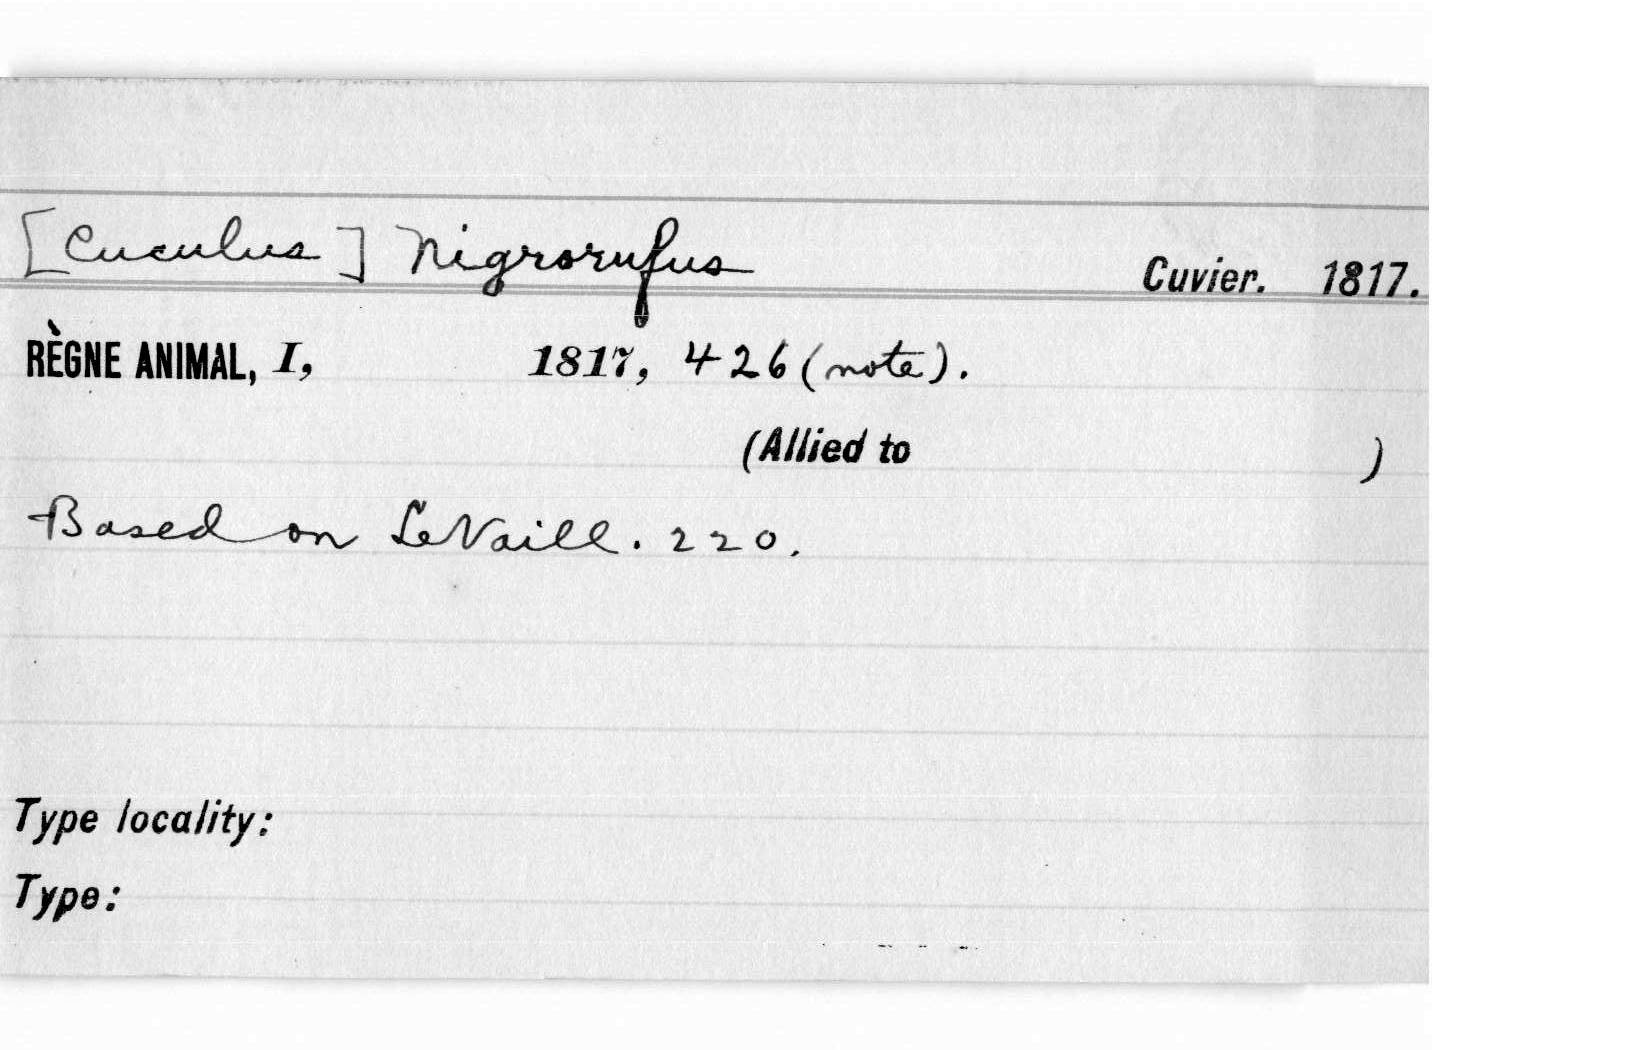 [Cuculus] Nigrorufus Cuvier. 1817.
RÈGNE ANIMAL, I, 1817, 426 (note).
(Allied to )
Based on LeVaill. 220.
Type locality:
Type: